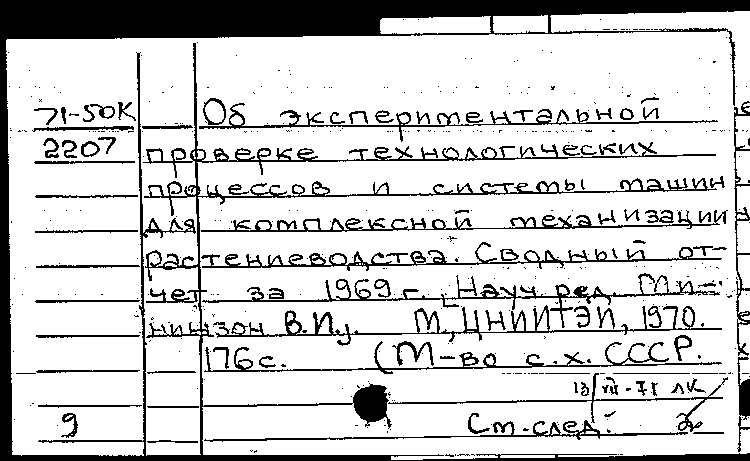 71-50К Об экспериментальной
2207 проверке технологических
процессов и системы машин
для комплексной механизации
растениеводства. Сводный от-
чет за 1969 г. Науч. ред. Ми-
нинзон В.И. М., ЦНИИТЭИ, 1970.
176 с. (М-во с.х. СССР.
13/VII-71 ЛК
9 См. след. 2